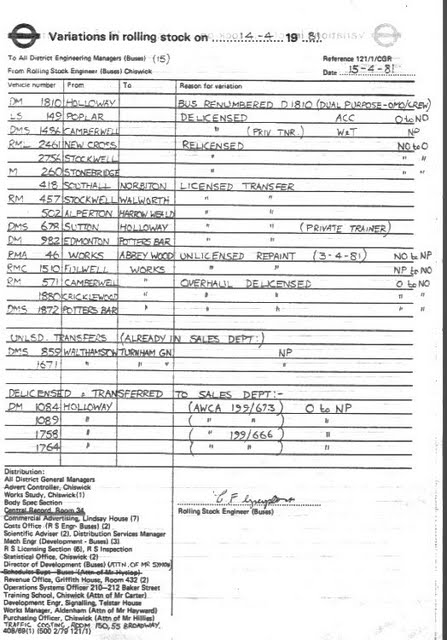 Variations in rolling stock on 14-4 1981
To All District Engineering Managers (Buses) (15) Reference 121/1/CGR
From Rolling Stock Engineer (Buses) Chiswick Date 15-4-81
Vehicle number From To Reason for variation
DM 1810 HOLLOWAY BUS RENUMBERED D1810 (DUAL PURPOSE-OMO/CREW)
LS 149 POPLAR DELICENSED ACC O to NO
DMS 1486 CAMBERWELL " (PRIV TNR.) W&T NP
RML 2461 NEW CROSS RELICENSED NO to O
2756 STOCKWELL " " "
M 260 STONEBRIDGE " " "
418 SOUTHALL NORBITON LICENSED TRANSFER
RM 457 STOCKWELL WALWORTH " "
502 ALPERTON HARROW WEALD " "
DMS 678 SUTTON HOLLOWAY " " (PRIVATE TRAINER)
DM 982 EDMONTON POTTERS BAR " "
RMA 46 WORKS ABBEY WOOD UNLICENSED REPAINT (3-4-81) NO to NP
RMC 1510 FULWELL WORKS " " NP to NO
RM 571 CAMBERWELL " OVERHAUL DELICENSED O to NO
1880 CRICKLEWOOD " " " "
DMS 1872 POTTERS BAR " " " "
UNLSD. TRANSFERS (ALREADY IN SALES DEPT:)
DMS 859 WALTHAMSTOW TURNHAM GN. NP
1671 " " "
DELICENSED & TRANSFERRED TO SALES DEPT:-
DM 1084 HOLLOWAY (AWCA 199/673) O to NP
1089 " ( " " ) "
1758 " ( " 199/666) "
1764 " ( " " ) "
Distribution:
All District General Managers
Advert Controller, Chiswick
Works Study, Chiswick(1)
Body Spec Section
Central Record, Room 34
Commercial Advertising, Lindsay House (7)
Costs Office (R S Engr- Buses) (2)
Scientific Adviser (2), Distribution Services Manager
Mech Engr (Development - Buses) (3)
R S Licensing Section (6), R S Inspection
Statistical Office, Chiswick (2)
Director of Development (Buses) (ATTN. OF MR SIMON)
Schedules Supt - Buses (Attn of Mr Hyslop)
Revenue Office, Griffith House, Room 432 (2)
Operations Systems Officer 210-212 Baker Street
Training School, Chiswick (Attn of Mr Carter)
Development Engr, Signalling, Telstar House
Works Manager, Aldenham (Attn of Mr Hayward)
Purchasing Officer, Chiswick (Attn of Mr Hillies)
TRAFFIC COSTING ROOM 150, 55 BROADWAY.
408/69(1) (500 2/79 121/1)
Rolling Stock Engineer (Buses)